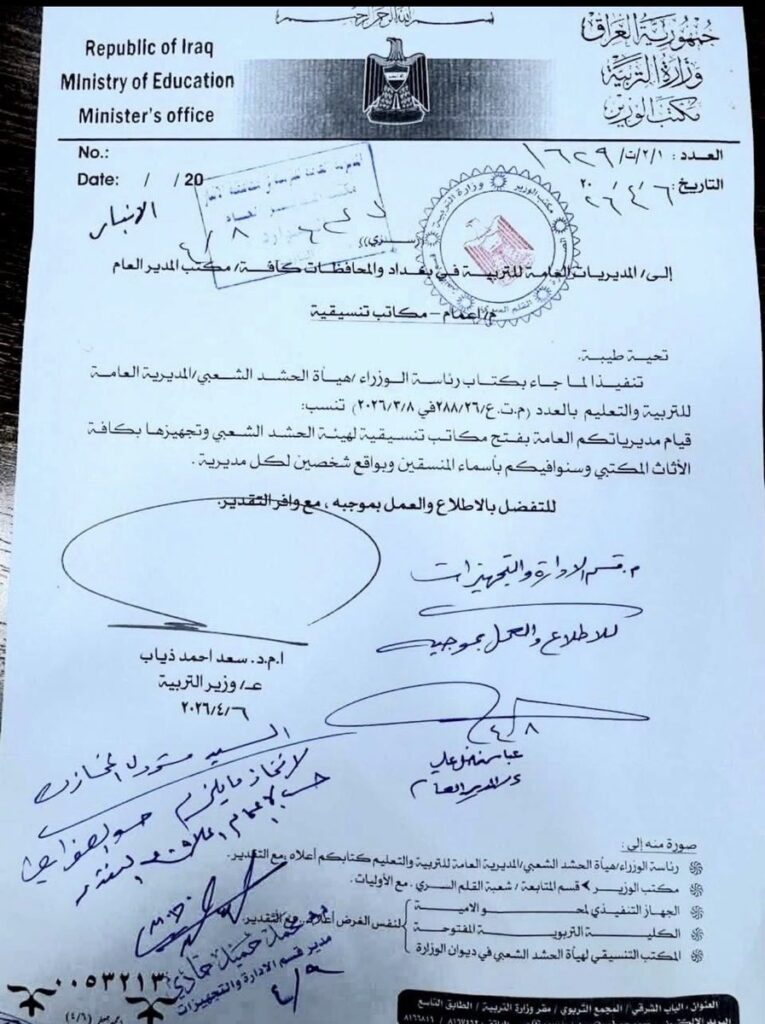 بسم الله الرحمن الرحيم
Republic of Iraq
Ministry of Education
Minister's office
جمهورية العراق
وزارة التربية
مكتب الوزير
No.:
Date: / / 20
العدد : ١/٢/ت/ ١٦٢٩
التاريخ: ٢٠٢٦/٤/٦
الانبار
٤/٨
وزارة التربية
مكتب الوزير
إلى/ المديريات العامة للتربية في بغداد والمحافظات كافة/ مكتب المدير العام
م/ إعمام – مكاتب تنسيقية
تحية طيبة.
تنفيذا لما جاء بكتاب رئاسة الوزراء /هيأة الحشد الشعبي/المديرية العامة
للتربية والتعليم بالعدد (م.ت.ع/٢٨٨/٢٦في ٢٠٢٦/٣/٨) تنسب:
قيام مديرياتكم العامة بفتح مكاتب تنسيقية لهيئة الحشد الشعبي وتجهيزها بكافة
الأثاث المكتبي وسنوافيكم بأسماء المنسقين وبواقع شخصين لكل مديرية .
للتفضل بالاطلاع والعمل بموجبه ، مع وافر التقدير.
م. قسم الادارة والتجهيزات
للاطلاع والعمل بموجبه
ا.م.د. سعد احمد ذياب
عـ/ وزير التربية
٢٠٢٦/٤/٦
٤/٨
ع/المدير العام
السيد مسؤول المخازن
لاتخاذ مايلزم
حسب الاعمام اعلاه
مدير قسم الادارة والتجهيزات
٤/٨
صورة منه إلى :
رئاسة الوزراء/هيأة الحشد الشعبي/المديرية العامة للتربية والتعليم كتابكم أعلاه .مع التقدير.
مكتب الوزير > قسم المتابعة / شعبة القلم السري . مع الأوليات .
الجهاز التنفيذي لمحو الامية
الكلية التربوية المفتوحة
لنفس الغرض أعلاه .. مع التقدير.
المكتب التنسيقي لهيأة الحشد الشعبي في ديوان الوزارة
٠٠٥٣٢١٣
(٤/٦)
العنوان . الباب الشرقي / المجمع التربوي / مقر وزارة التربية / الطابق التاسع